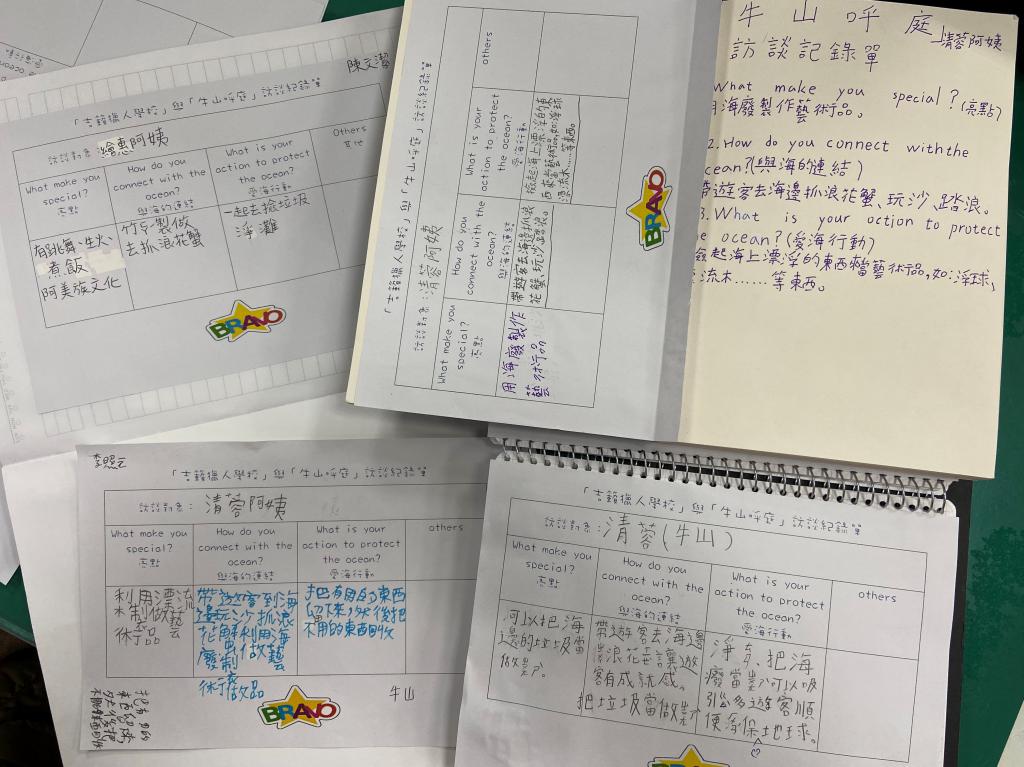 陳文潔
「吉籟獵人學校」與「牛山呼庭」訪談紀錄單
訪談對象：繪惠阿姨
What make you special?
亮點
How do you connect with the ocean?
與海的連結
What is your action to protect the ocean?
愛海行動
Others
其他
有跳舞、生火、
煮飯
阿美族文化
竹
製做
去抓浪花蟹
一起去撿垃圾
淨灘
BRAVO
「吉籟獵人學校」與「牛山呼庭」訪談紀錄單
訪談對象：清蓉阿姨
What make you special?
亮點
How do you connect with the ocean?
與海的連結
What is your action to protect the ocean?
愛海行動
others
用海廢製作
藝術品
帶遊客去海邊抓浪
花蟹、玩沙、踏浪。
撿起海上漂浮的東
西來當藝術品,如:浮球
漂流木……等東西。
BRAVO
牛山呼庭
-清蓉阿姨
訪談記錄單
What make you special?(亮點)
用海廢製作藝術品。
2.How do you connect with the
ocean?(與海的連結)
帶遊客去海邊抓浪花蟹、玩沙、踏浪。
3. What is your oction to protect
he ocean?(愛海行動)
撿起海上漂浮的東西當藝術品,如:浮球,
流木……等東西。
李照
「吉籟獵人學校」與「牛山呼庭」訪談紀錄單
訪談對象：清蓉阿姨
What make you special?
亮點
How do you connect with the ocean?
與海的連結
What is your action to protect the ocean?
愛海行動
others
利用漂流
木制做藝
術品
帶遊客到海
邊玩沙抓浪
花蟹利用海
廢制做藝
術品
把有用的東西
留下來,然後把
不用的東西回收
牛山
BRAVO
「吉籟獵人學校」與「牛山呼庭」訪談紀錄單
訪談對象：清蓉(牛山)
What make you special?
亮點
How do you connect with the ocean?
與海的連結
What is your action to protect the ocean?
愛海行動
others
可以把海
邊的垃圾當
做
帶遊客去海邊
浪花
讓遊
客有成就感。
把垃圾當做
淨灘,把海
廢當
可以吸
引
多遊客順
便
保地球。
BRAVO